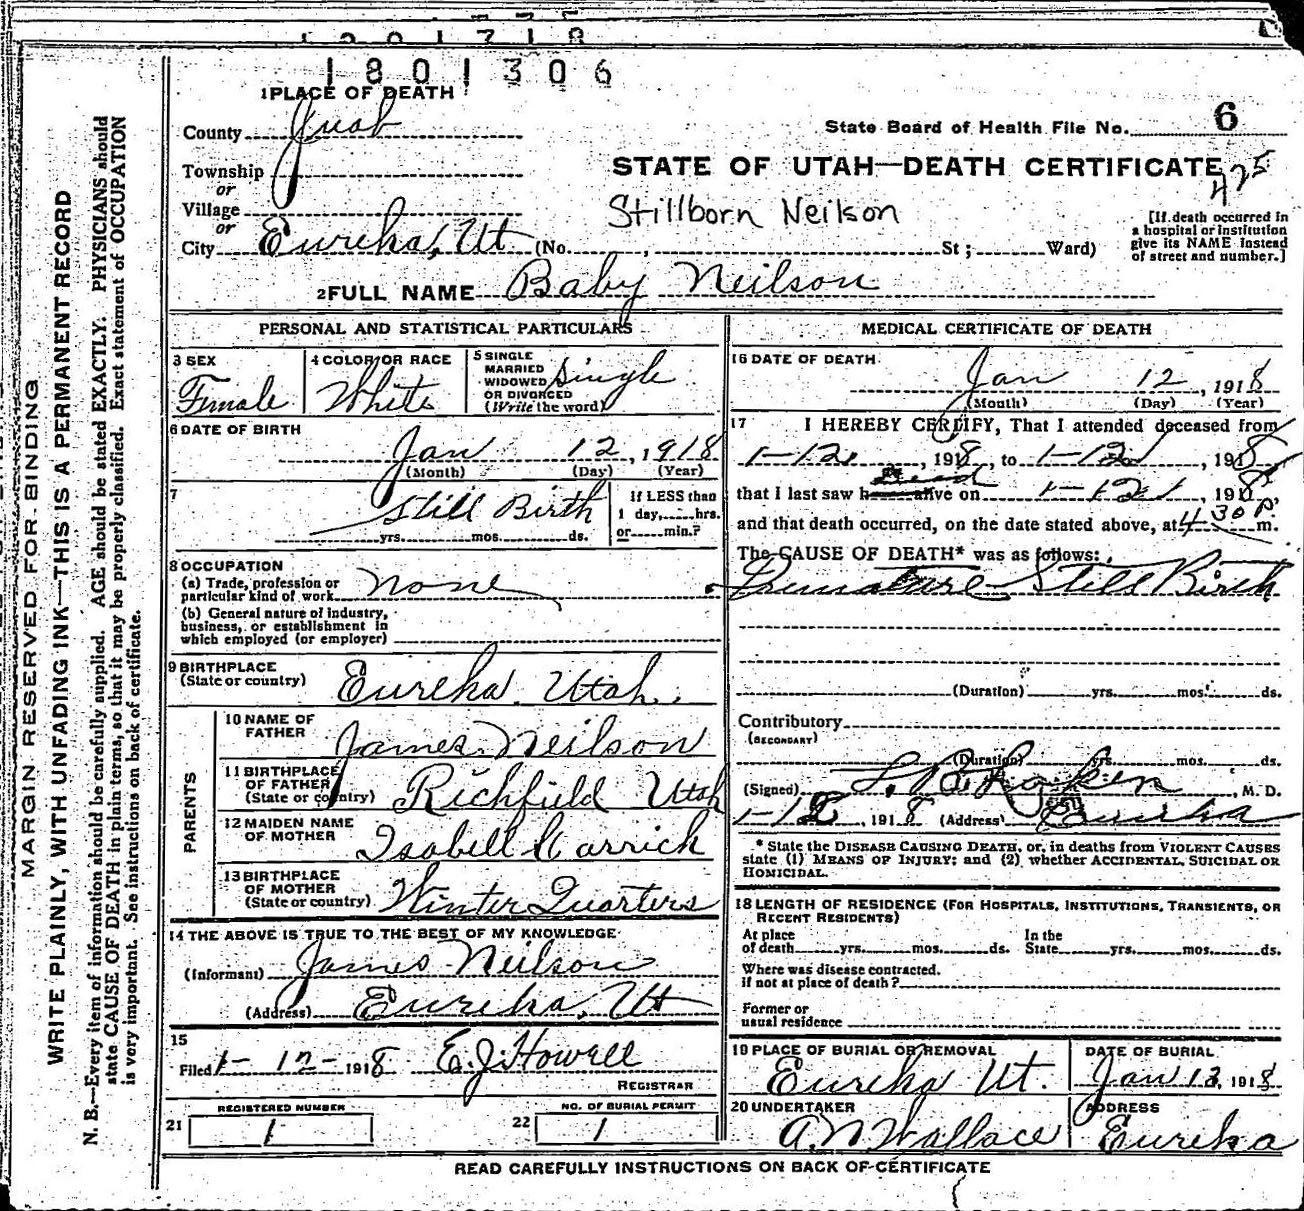 1801306
1 PLACE OF DEATH
County Juab
State Board of Health File No. 6
Township
or
STATE OF UTAH—DEATH CERTIFICATE
425
Village
or
Stillborn Neilson
City Eureka, Ut (No. , St; Ward)
[If death occurred in
a hospital or institution
give its NAME instead
of street and number.]
2 FULL NAME Baby Neilson
PERSONAL AND STATISTICAL PARTICULARS
3 SEX
Female
4 COLOR OR RACE
White
5 SINGLE
MARRIED
WIDOWED
OR DIVORCED
(Write the word)
Single
6 DATE OF BIRTH
Jan 12, 1918
(Month) (Day) (Year)
7
Still Birth
yrs. mos. ds.
If LESS than
1 day, hrs.
or min.?
8 OCCUPATION
(a) Trade, profession or
particular kind of work none
(b) General nature of industry,
business, or establishment in
which employed (or employer)
9 BIRTHPLACE
(State or country) Eureka Utah.
PARENTS
10 NAME OF
FATHER James Neilson
11 BIRTHPLACE
OF FATHER
(State or country) Richfield Utah
12 MAIDEN NAME
OF MOTHER Isabell Carrick
13 BIRTHPLACE
OF MOTHER
(State or country) Winter Quarters
14 THE ABOVE IS TRUE TO THE BEST OF MY KNOWLEDGE
(Informant) James Neilson
(Address) Eureka, Ut
15
Filed 1-12-1918 E.J. Howell
REGISTRAR
REGISTERED NUMBER
21 1
NO. OF BURIAL PERMIT
22 1
MEDICAL CERTIFICATE OF DEATH
16 DATE OF DEATH
Jan 12, 1918
(Month) (Day) (Year)
17 I HEREBY CERTIFY, That I attended deceased from
1-12, 1918, to 1-12, 1918
Dead
that I last saw h alive on 1-12, 1918,
and that death occurred, on the date stated above, at 4 30 P. m.
The CAUSE OF DEATH* was as follows:
Premature Still Birth
(Duration) yrs. mos. ds.
Contributory
(SECONDARY)
(Duration) yrs. mos. ds.
(Signed) , M. D.
1-12, 1918 (Address) Eureka
* State the DISEASE CAUSING DEATH, or, in deaths from VIOLENT CAUSES
state (1) MEANS OF INJURY; and (2) whether ACCIDENTAL, SUICIDAL OR
HOMICIDAL.
18 LENGTH OF RESIDENCE (FOR HOSPITALS, INSTITUTIONS, TRANSIENTS, OR
RECENT RESIDENTS)
At place
of death yrs. mos. ds.
In the
State yrs. mos. ds.
Where was disease contracted.
if not at place of death?
Former or
usual residence
19 PLACE OF BURIAL OR REMOVAL
Eureka Ut.
DATE OF BURIAL
Jan 13, 1918
20 UNDERTAKER
A.N Wallace
ADDRESS
Eureka
READ CAREFULLY INSTRUCTIONS ON BACK OF CERTIFICATE
MARGIN RESERVED FOR BINDING
WRITE PLAINLY, WITH UNFADING INK—THIS IS A PERMANENT RECORD
N. B.—Every item of information should be carefully supplied. AGE should be stated EXACTLY. PHYSICIANS should
state CAUSE OF DEATH in plain terms, so that it may be properly classified. Exact statement of OCCUPATION
is very important. See instructions on back of certificate.